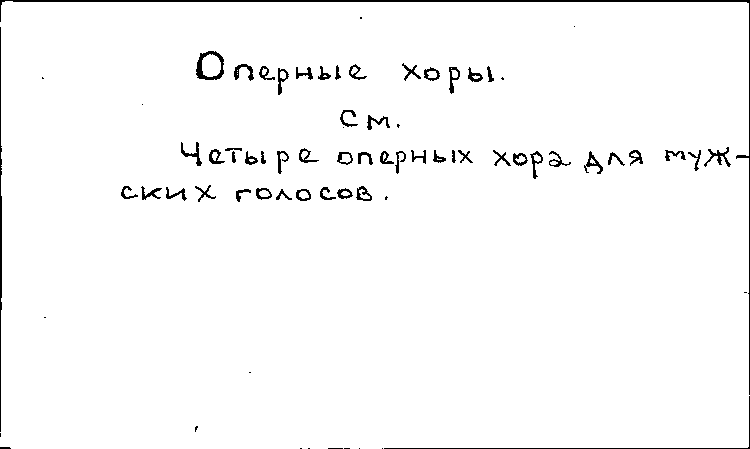 Оперные хоры.
см.
Четыре оперных хора для муж-
ских голосов.